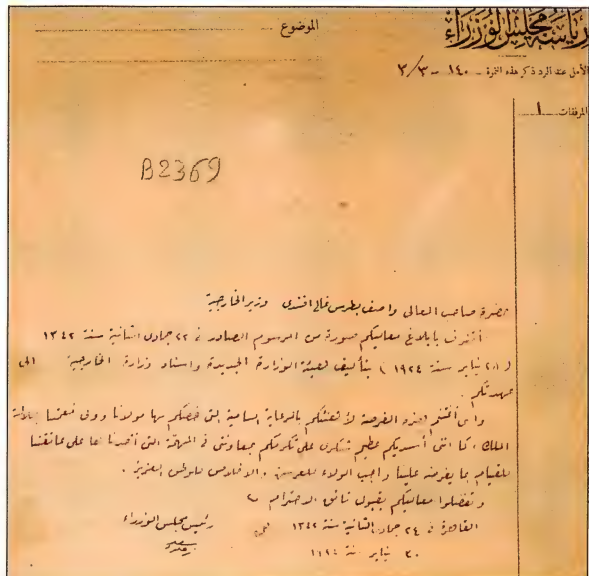 رياسة مجلس الوزراء
الموضوع
الأمل عند الرد ذكر هذه النمرة – ١٤٠ – ٣/٣
المرفقات ١
B2369
حضرة صاحب المعالى واصف بطرس غالى افندى وزير الخارجية
أتشرف بابلاغ معاليكم صورة من المرسوم الصادر فى ٢٢ جمادى الثانية سنة ١٣٤٢
(٢٨ يناير سنة ١٩٢٤) بتأليف هيئة الوزارة الجديدة واسناد وزارة الخارجية الى
عهدتكم .
وانى أغتنم هذه الفرصة لأهنئكم بالرعاية السامية التى خصكم بها مولانا وولى نعمتنا جلالة
الملك ، كما انى أسديكم عظيم شكرى على تكرمكم بمعاونتى فى المهمة التى أخذناها على عاتقنا
للقيام بما يفرضه علينا واجب الولاء للعرش والاخلاص للوطن العزيز .
وتفضلوا معاليكم بقبول فائق الاحترام
القاهرة فى ٢٤ جمادى الثانية سنة ١٣٤٢ رئيس مجلس الوزراء
٣٠ يناير سنة ١٩٢٤